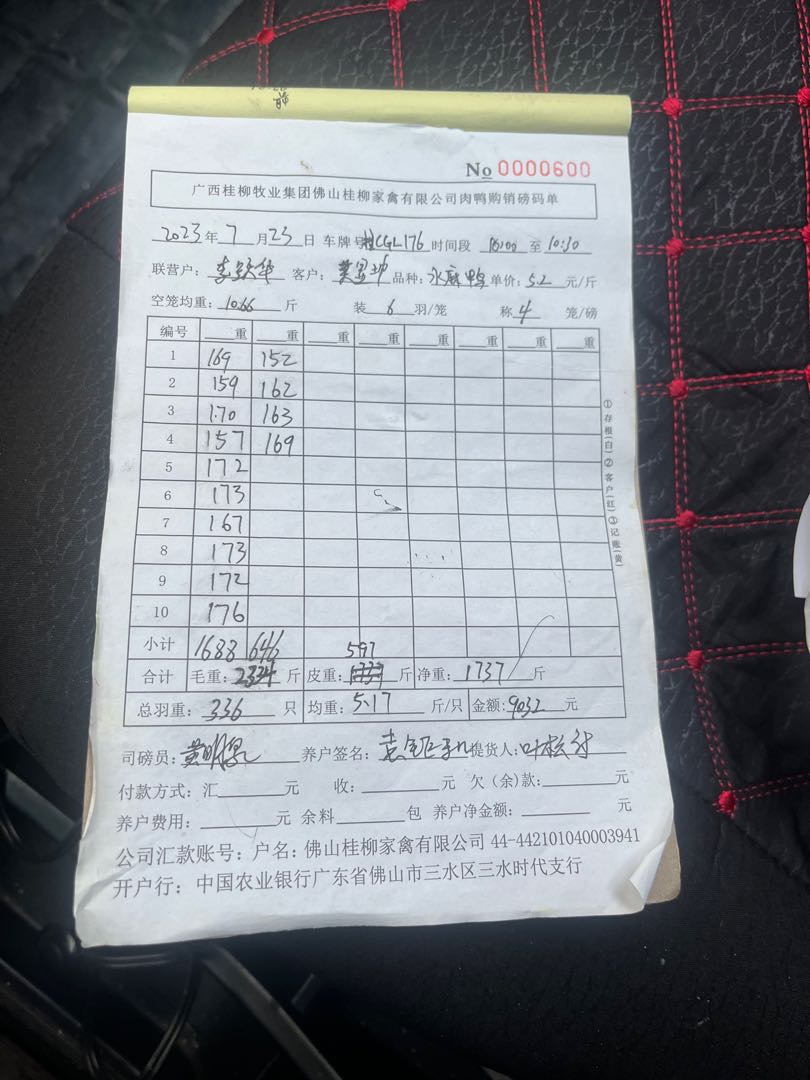 No 0000600
广西桂柳牧业集团佛山桂柳家禽有限公司肉鸭购销磅码单
2023年 7 月 23 日 车牌号 桂CGL176 时间段 10:00 至 10:30
联营户: 李 华 客户: 黄 坤 品种: 水麻鸭 单价: 5.2 元/斤
空笼均重: 10.66 斤 装 6 羽/笼 称 4 笼/磅
编号 重 重 重 重 重 重 重 重
1 169 152
2 159 162
3 170 163
4 157 169
5 172
6 173
7 167
8 173
9 172
10 176
小计 1688 646
597
合计 毛重: 2334 斤 皮重: 斤 净重: 1737 斤
总羽重: 336 只 均重: 5.17 斤/只 金额: 9032 元
司磅员: 黄明 养户签名: 提货人: 叶
付款方式: 汇 元 收: 元 欠(余)款: 元
养户费用: 元 余料 包 养户净金额: 元
公司汇款账号: 户名: 佛山桂柳家禽有限公司 44-442101040003941
开户行: 中国农业银行广东省佛山市三水区三水时代支行
①存根(白)②客户(红)③记账(黄)